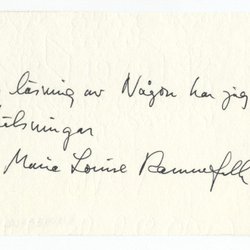 läsning av Någon har jag
hälsningar
Maria Louise Ramnefalk